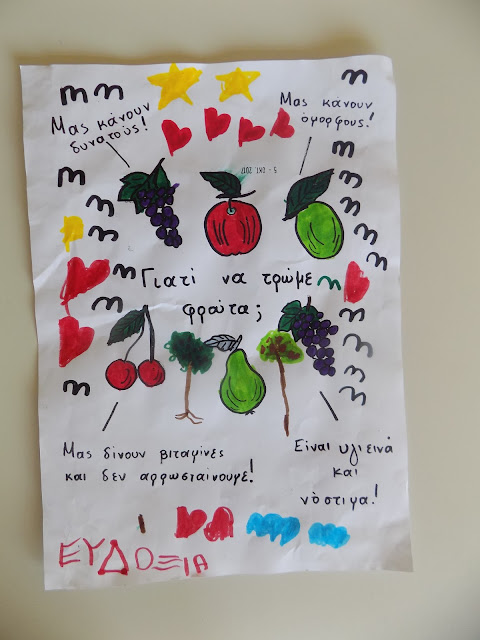 Μας κάνουν
δυνατούς!
Μας κάνουν
όμορφους!
5 - ΟΚΤ 2017
Γιατί να τρώμε
φρούτα;
Μας δίνουν βιταμίνες
και δεν αρρωσταίνουμε!
Είναι υγιεινά
και
νόστιμα!
ΕΥΔΟΞΙΑ